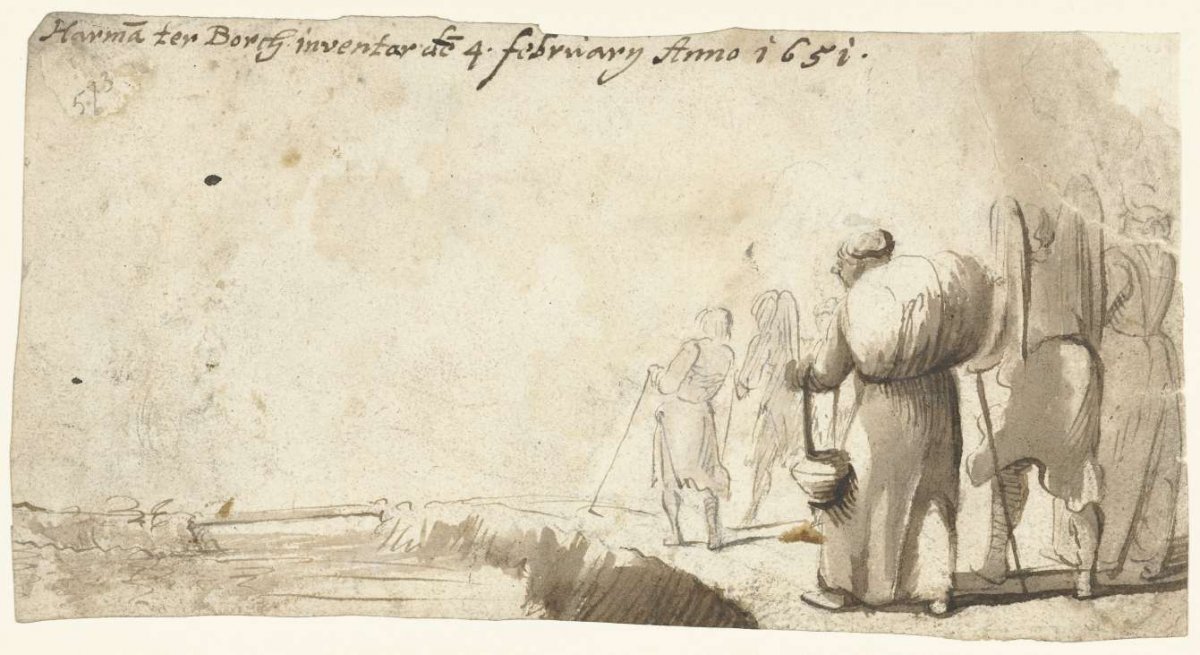 Harmā ter Borch inventor dē 4. februarÿ Anno 1651.
513